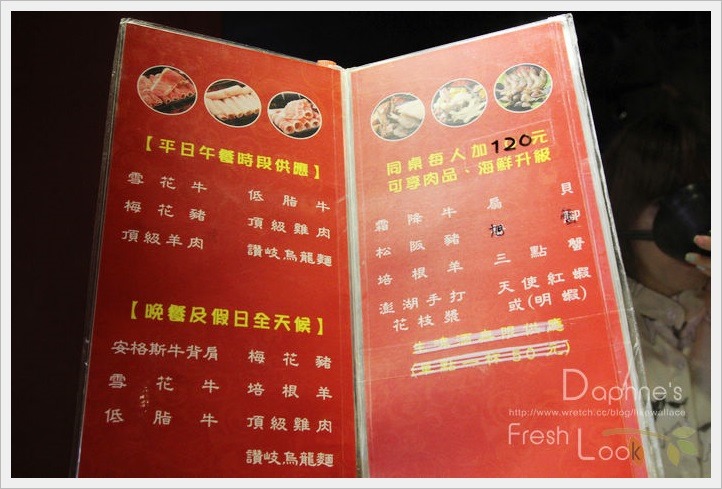 【平日午餐時段供應】
雪花牛 低脂牛
梅花豬 頂級雞肉
頂級羊肉 讚岐烏龍麵
【晚餐及假日全天候】
安格斯牛背肩 梅花豬
雪花牛 培根羊
低脂牛 頂級雞肉
讚岐烏龍麵
同桌每人加120元
可享肉品、海鮮升級
霜降牛 扇貝
松阪豬
培根羊 三點蟹
澎湖手打 天使紅蝦
花枝漿 或(明蝦)
Daphne's
http://www.wretch.cc/blog/likewallace
Fresh Look